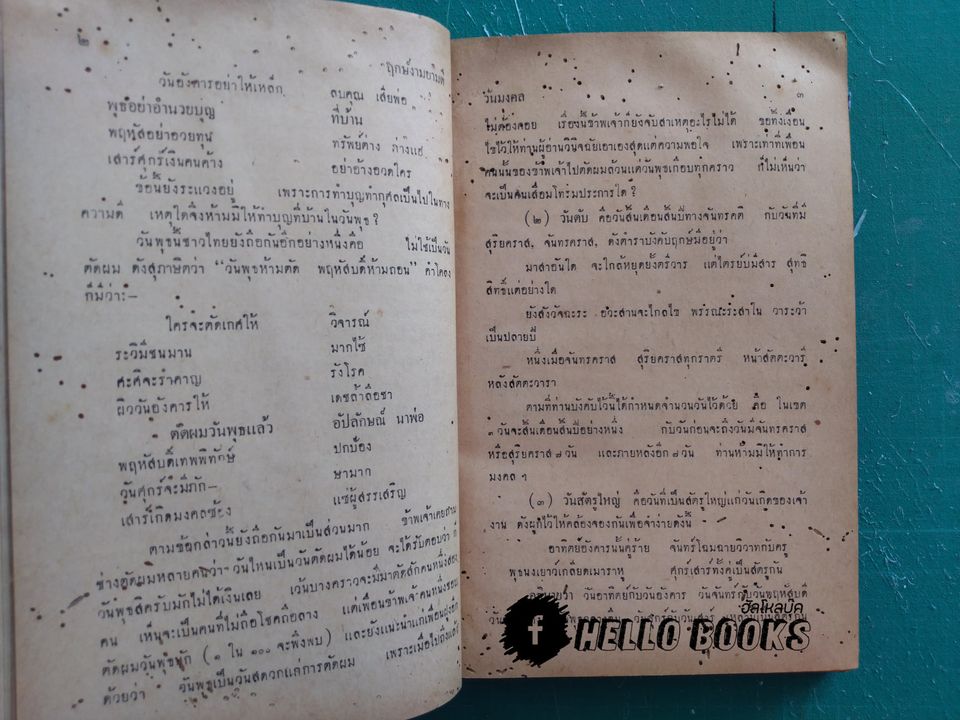 ๒ ฤกษ์งามยามดี
วันอังคารอย่าให้เหล็ก ลบคุณ เสียพ่อ
พุธอย่าอำนวยบุญ ที่บ้าน
พฤหัสอย่าอวยทุน ทรัพย์ต่าง กางแฮ
เสาร์ศุกร์เงินคนค้าง อย่าอ้างอวดใคร
ข้อนี้ยังระแวงอยู่ เพราะการทำบุญทำกุศลเป็นไปในทาง
ความดี เหตุใดจึงห้ามมิให้ทำบุญที่บ้านในวันพุธ ?
วันพุธนี้ชาวไทยยังถือกันอีกอย่างหนึ่งคือ ไม่ใช้เป็นวัน
ตัดผม ดังสุภาษิตว่า “วันพุธห้ามตัด พฤหัสบดีห้ามถอน” คำโคลง
ก็มีว่า:–
ใครจะตัดเกศให้ วิจารณ์
ระวิมีชนมาน มากไซ้
ศะศิจะรำคาญ รังโรค
ผิววันอังคารให้ เดชถ้าถือชา
ตัดผมวันพุธแล้ว อัปลักษณ์ นาพ่อ
พฤหัสบดีเทพพิทักษ์ ปกป้อง
วันศุกร์จะมีภัก– ษามาก
เสาร์เกิดมงคลซ้อง แซ่ผู้สรรเสริญ
ตามข้อกล่าวนี้ยังถือกันมาเป็นส่วนมาก ข้าพเจ้าเคยถาม
ช่างตัดผมหลายคนว่า วันไหนเป็นวันตัดผมได้น้อย จะได้รับตอบว่า ก็
วันพุธสิครับมักไม่ได้เงินเลย เว้นบางคราวจะมีมาตัดสักคนหนึ่งสอง
คน เห็นจะเป็นคนที่ไม่ถือโชคถือลาง แต่เพื่อนข้าพเจ้าคนหนึ่งชอบ
ตัดผมวันพุธนัก ( ๑ ใน ๑๐๐ จะพึงพบ ) และยังแนะนำแก่เพื่อนฝูงอีก
ด้วยว่า วันพุธเป็นวันสดวกแก่การตัดผม เพราะเมื่อไปถึงแล้ว
วันมงคล ๓
ไม่ต้องคอย เรื่องนี้ข้าพเจ้าก็ยังจับสาเหตุอะไรไม่ได้ ขอทิ้งเงื่อน
ไขไว้ให้ท่านผู้อ่านวินิจฉัยเอาเองสุดแต่ความพอใจ เพราะเท่าที่เพื่อน
คนนั้นของข้าพเจ้าไปตัดผมล้วนแต่วันพุธเกือบทุกคราว ก็ไม่เห็นว่า
จะเป็นคนเสื่อมโทรมประการใด ?
(๒) วันดับ คือวันสิ้นเดือนสิ้นปีทางจันทรคติ กับวันที่มี
สุริยคราส, จันทรคราส, ดังตำราบังคับฤกษ์มีอยู่ว่า
มาสาอันใด จะใกล้หยุดยั้งตรีวาร แต่ไตรย์บ่มีสาร สุทธิ
สิทธิ์แต่อย่างใด
ยังสังวัจฉะระ อวะสานจะไกลไข พรรณะระสาใน วาระวำ
เป็นปลายปี
หนึ่งเมื่อจันทรคราส สุริยคราสทุกราตรี หน้าสัตตะวารี
หลังสัตตะวารา
ตามที่ท่านบังคับไว้นี้ได้กำหนดจำนวนวันไว้ด้วย คือ ในเขต
๓ วันจะสิ้นเดือนสิ้นปีอย่างหนึ่ง กับวันก่อนจะถึงวันมีจันทรคราส
หรือสุริยคราส ๗ วัน และภายหลังอีก ๗ วัน ท่านห้ามมิให้ทำการ
มงคล ฯ
(๓) วันสัตรูใหญ่ คือวันที่เป็นสัตรูใหญ่แก่วันเกิดของเจ้า
งาน ดังผูกไว้ให้คล้องจองกันเพื่อจำง่ายดังนี้
อาทิตย์อังคารนั้นคู่ร้าย จันทร์โฉมฉายวิวาทกับครู
พุธนงเยาว์เกลียดเมาราหู ศุกร์เสาร์ทั้งคู่เป็นสัตรูกัน
วันอาทิตย์กับวันอังคาร วันจันทร์กับวันพฤหัสบดี
ฮัลโหลบุ๊ค
f HELLO BOOKS